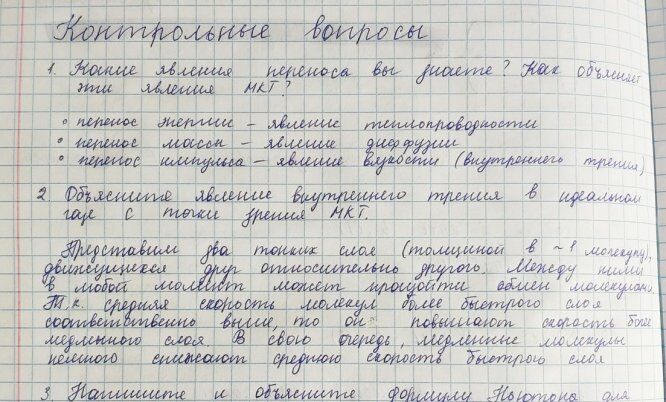 Контрольные вопросы
1. Какие явления переноса вы знаете? Как объясняет
эти явления МКТ?
• перенос энергии – явление теплопроводности
• перенос массы – явление диффузии
• перенос импульса – явление вязкости (внутреннего трения)
2. Объясните явление внутреннего трения в идеальном
газе с точки зрения МКТ.
Представим два тонких слоя (толщиной в ~ 1 молекулу),
движущихся друг относительно другого. Между ними
в любой момент может произойти обмен молекулами.
Т.к. средняя скорость молекул более быстрого слоя
соответственно выше, то он повышают скорость более
медленного слоя В свою очередь, медленные молекулы
немного снижают среднюю скорость быстрого слоя
3. Напишите и объясните формулу Ньютона для